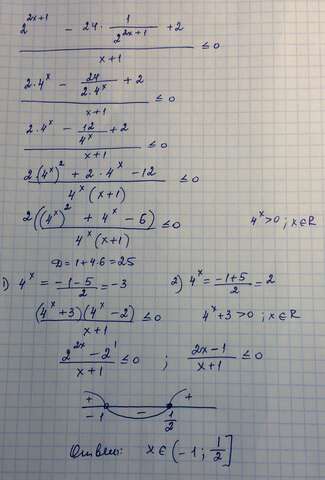 (2^(2x+1) - 24 · 1/2^(2x+1) + 2)/(x+1) ≤ 0
(2·4^x - 24/(2·4^x) + 2)/(x+1) ≤ 0
(2·4^x - 12/4^x + 2)/(x+1) ≤ 0
(2(4^x)^2 + 2·4^x - 12)/(4^x(x+1)) ≤ 0
2((4^x)^2 + 4^x - 6)/(4^x(x+1)) ≤ 0 4^x > 0 ; x∈R
D = 1+4·6 = 25
1) 4^x = (-1-5)/2 = -3 2) 4^x = (-1+5)/2 = 2
(4^x+3)(4^x-2)/(x+1) ≤ 0 4^x+3 > 0 ; x∈R
(2^(2x) - 2^1)/(x+1) ≤ 0 ; (2x-1)/(x+1) ≤ 0
+ - +
-1 1/2
Ответ: x∈(-1; 1/2]